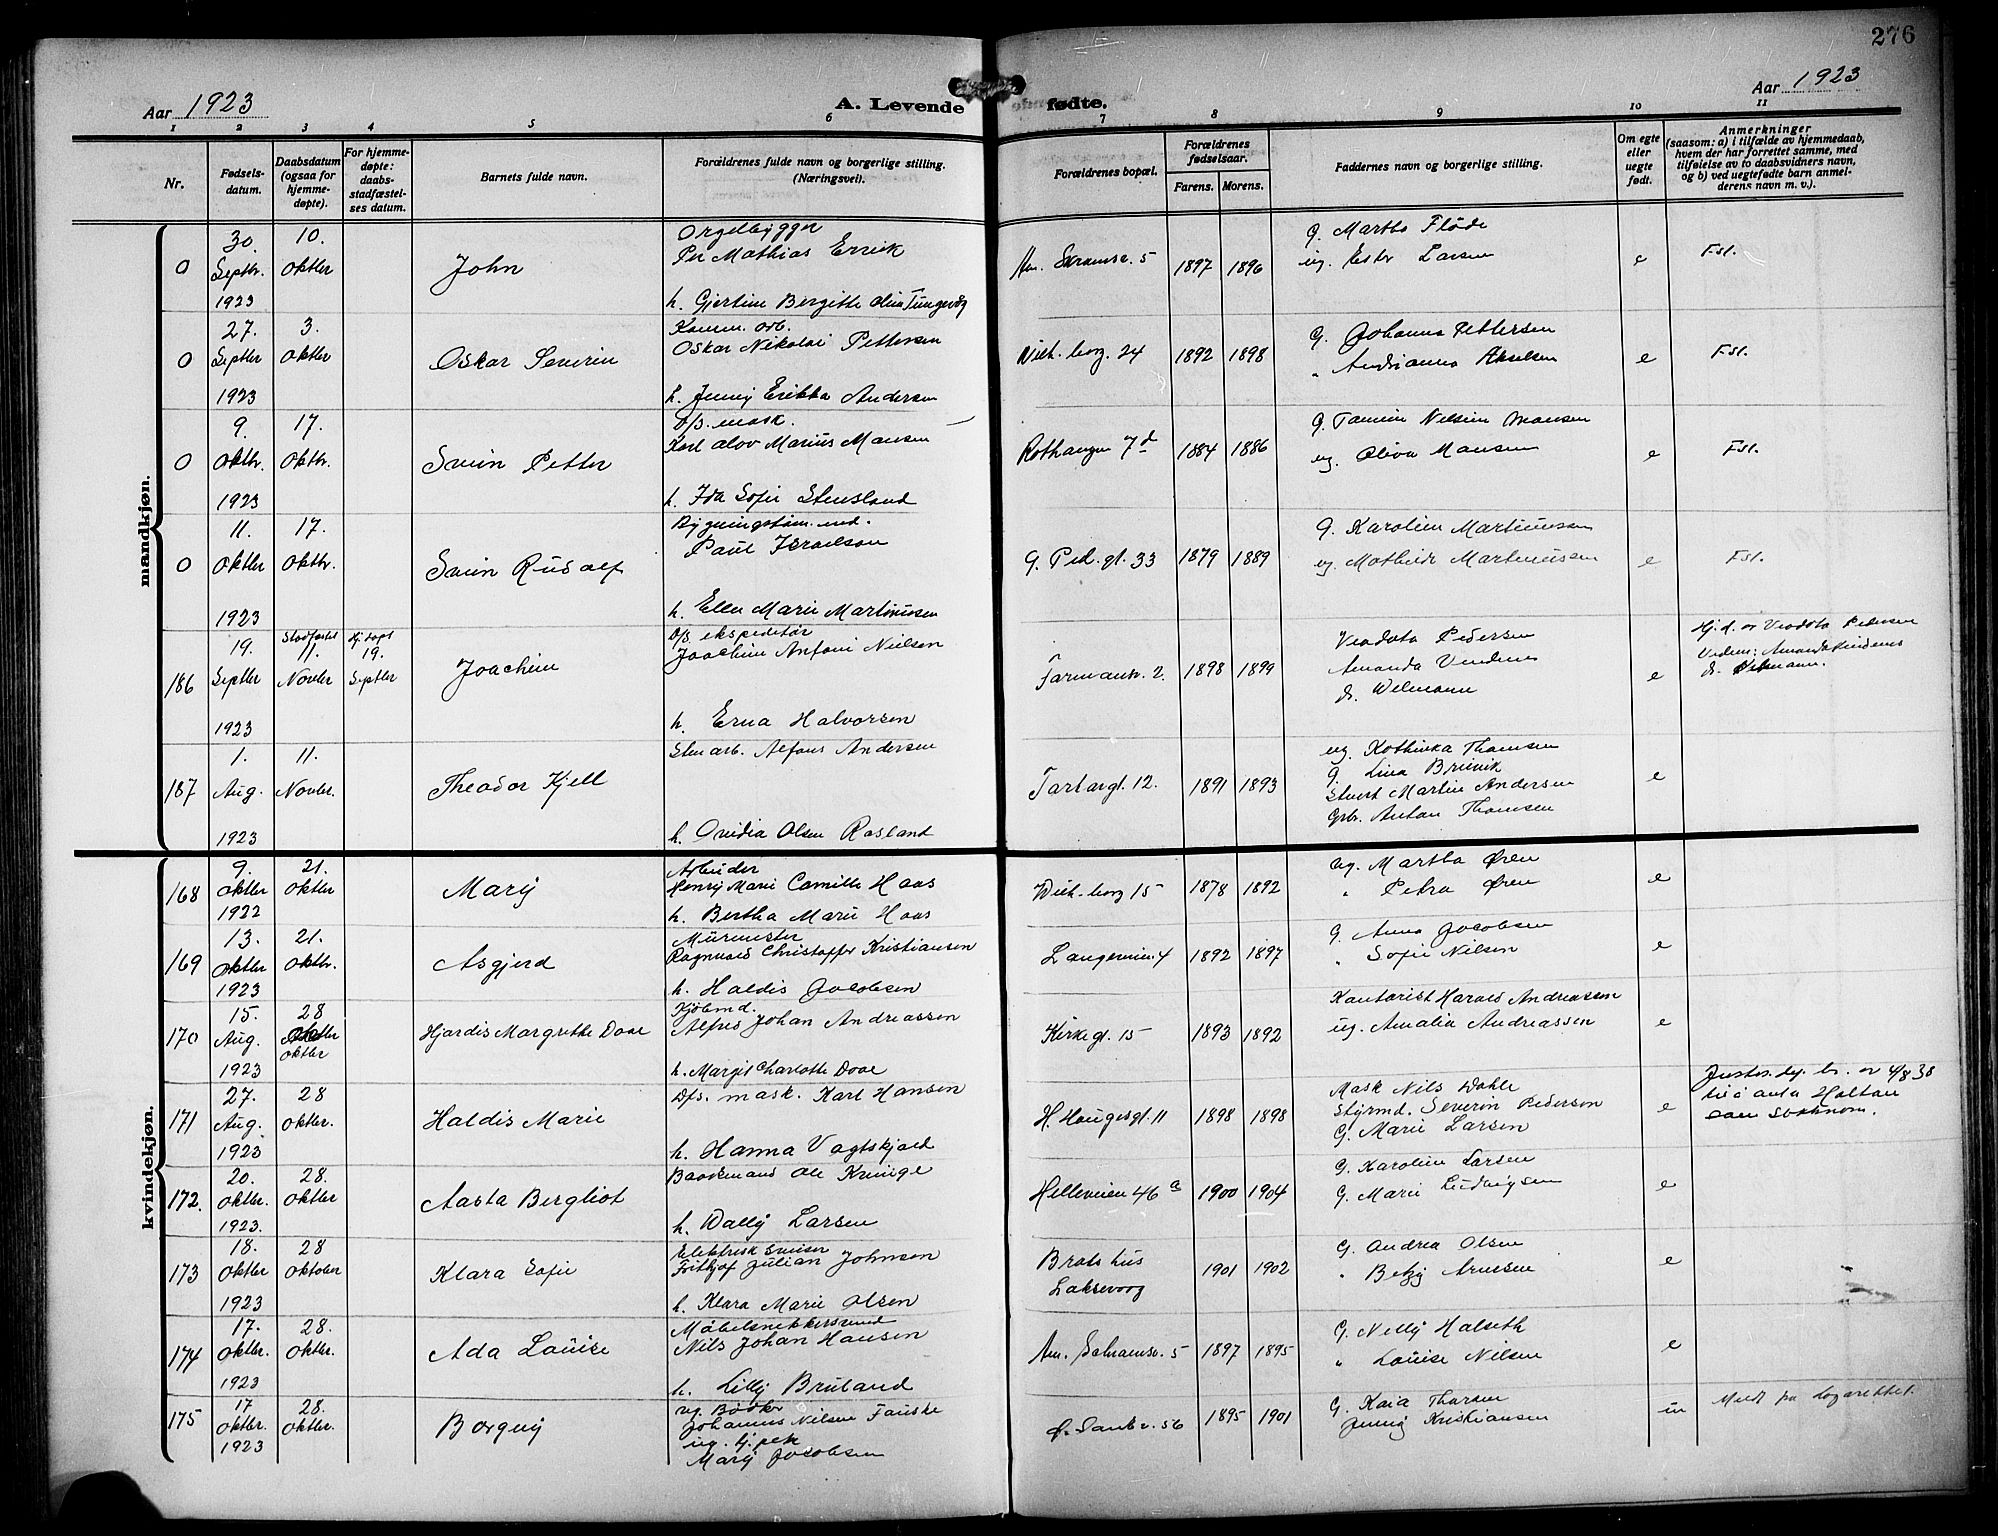 276
Aar 1923
A. Levende fødte.
Aar 1923
1 2 3 4 5 6 7 8 9 10 11
Nr.
Fødsels-
datum.
Daabsdatum
(ogsaa for
hjemme-
døpte).
For hjemme-
døpte:
daabs-
stadfæstel-
ses datum.
Barnets fulde navn.
Forældrenes fulde navn og borgerlige stilling.
(Næringsvei).
Forældrenes bopæl.
Forældrenes
fødselsaar.
Farens. Morens.
Faddernes navn og borgerlige stilling.
Om egte
eller
uegte
født.
Anmerkninger
(saasom: a) i tilfælde av hjemmedaab,
hvem der har forrettet samme, med
tilføielse av to daabsvidners navn,
og b) ved uegtefødte barn anmel-
derens navn m. v.).
mandkjøn.
0 30. Septbr. 1923
10. oktbr
John
Orgelbygger
Per Mathias Errik
h. Gjertine Bergitte
1897 1896
G. Martha Fløde
ug. Ester Larsen
e
Fsl.
0 27. Septbr 1923
3. oktbr
Oskar Severin
Komm. arb.
Oskar Nikolai Pettersen
h. Jenny Erikka Andersen
Wilh. borg. 24
1892 1898
G. Johanna Pettersen
" Andrianna Akselsen
e
Fsl.
0 9. oktbr. 1923
17. oktbr.
Svein Petter
D/s. mask.
Karl Olov Marius Monsen
h. Ida Sofie Stensland
Rothaugen 7d
1884 1886
G. Tomine Nelsine Monsen
ug. Oliva Monsen
e
Fsl.
0 11. oktbr 1923
17. oktbr.
Svein Rudolf
Bygningstøm. md.
Paul Israelson
h. Ellen Marie Martinusen
G. Ped. gt. 33
1879 1889
G. Karoline Martinusen
ug. Mathilde Martinusen
e
Fsl.
186 19. Septbr 1923
Stadfæstet 11. Novbr
Hj. døpt 19. Septbr
Joachim
D/s. ekspeditør
Joachim Antoni Nielsen
h. Erna Halvorsen
2.
1898 1899
Veadota Pedersen
Amanda
dr. Welmann
e
Hj. d. av Veadota Pedersen
187 1. Aug. 1923
11. Novbr.
Theodor Kjell
Stenarb. Alfons Andersen
h. Ovidia Olsen Rosland
Tartargt. 12.
1891 1893
ug. Kathinka Thomsen
G. Lina Breivik
Stuert Martin Andersen
Grb. Anton Thomsen
e
kvindekjøn.
168 9. oktbr 1922
21. oktbr
Mary
Arbeider
Henry Marie Camille Haas
h. Bertha Marie Haas
Wilh. borg 15
1878 1892
ug. Martha Øren
" Petra Øren
e
169 13. oktbr 1923
21. oktbr.
Asgjerd
Murmester
Ragnvald Christoffer Kristiansen
h. Haldis Jacobsen
Langeveien 4
1892 1897
G. Anna Jacobsen
" Sofie Nilsen
e
170 15. Aug. 1923
28 oktbr
Hjørdis Margrethe Doae
Kjøbmd.
Alfred Johan Andreassen
h. Margit Charlotte Doae
Kirkegt. 15
1893 1892
Kontorist Harald Andreassen
ug. Amalia Andreassen
e
171 27. Aug. 1923
28 oktbr.
Haldis Marie
Dfs. mask. Karl Hansen
h. Hanna Vagtskjold
H. Haugesgt. 11
1898 1898
Mask Nils Dahle
Styrmd. Severin Pedersen
G. Marie Larsen
e
Justis. dep. br. av 4/8 38
til å anta Holtan
som slektsnom.
172. 20. oktbr. 1923.
28. oktbr
Aasta Bergliot
Baadsmand Ole Kringe
h. Wally Larsen
Helleveien 46a
1900 1904
G. Karoline Larsen
G. Marie Ludvigsen
e
173 18. oktbr 1923
28 oktober
Klara Sofie
Elektrisk sveiser
Fritjof Julian Johnsen
h. Klara Marie Olsen
Brats hus
Laksevaag
1901 1902
G. Andrea Olsen
" Betzy Arnesen
e
174 17. oktbr. 1923
28. oktbr.
Ada Louise
Møbelsnekkersvend
Nils Johan Hansen
h. Lilly Bruland
5
1897 1895
G. Nelly Halseth
" Louise Nilsen
e
175 17 oktbr. 1923
28. oktbr.
Borgny
ug. Bødker
Johannes Nilsen Fauske
ug. tj. pek
Mary Jacobsen
56
1895 1901
G. Kaia Thorsen
Jenny Kristiansen
u
Meldt på Lazarettet.